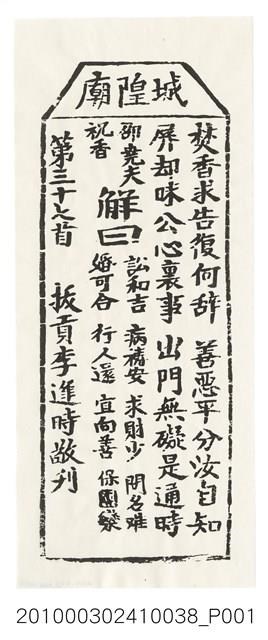 城隍廟
焚香求告復何辞 善惡平分汝自知
屏却昧公心裏事 出門無礙是通時
邵堯夫
祝香
解曰
訟和吉 病禱安 求財少 問名难
婚可合 行人還 宜向善 保團欒
第三十七首 拔貢李進時敬刋
201000302410038_P001